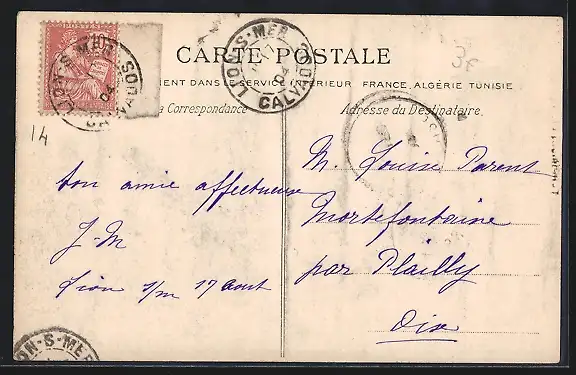 CARTE POSTALE
MENT DANS LE SERVICE INTÉRIEUR FRANCE, ALGÉRIE TUNISIE
la Correspondance
Adresse du Destinataire.
LION-S-MER
04
CALVADOS
LION-S-MER
04
CALVADOS
10
3f
14
ton amie affectueuse
J. M
Lion s/m 17 aout
M. Louise Parent
Mortefontaine
par Plailly
Oise
LION-S-MER